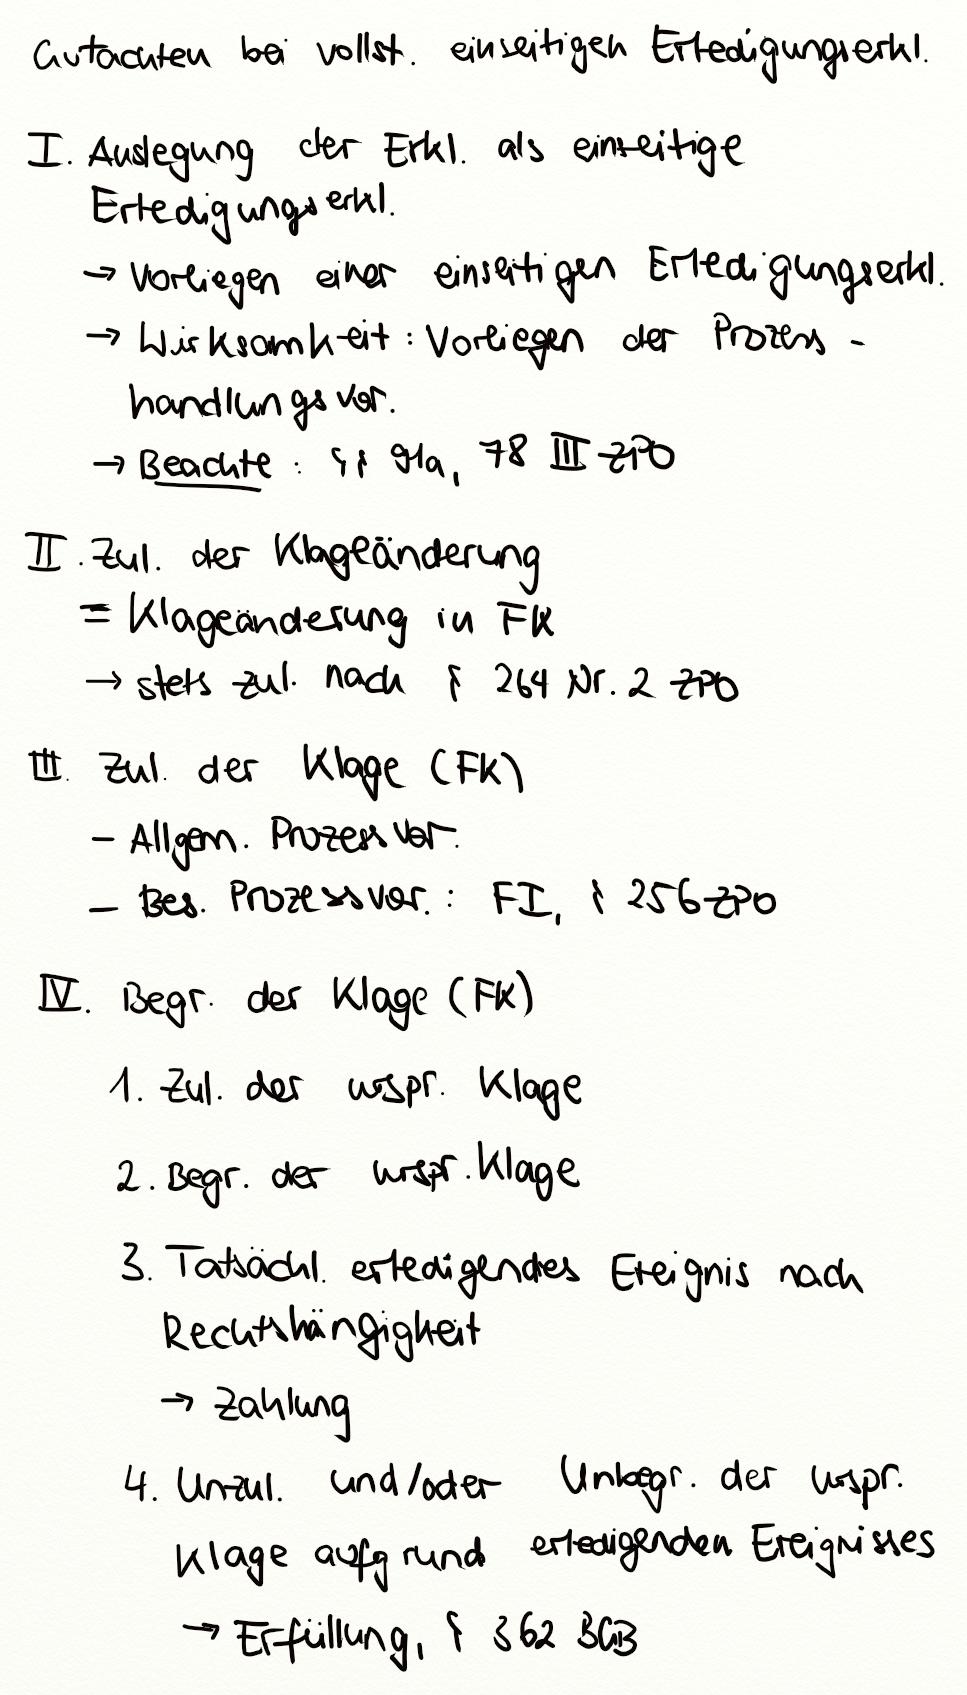 Gutachten bei vollst. einseitigen Erledigungserkl.
I. Auslegung der Erkl. als einseitige
Erledigungserkl.
→ Vorliegen einer einseitigen Erledigungserkl.
→ Wirksamkeit: Vorliegen der Prozess-
handlungsvor.
→ Beachte: §§ 91a, 78 III ZPO
II. Zul. der Klageänderung
= Klageänderung in FK
→ stets zul. nach § 264 Nr. 2 ZPO
III. Zul. der Klage (FK)
- Allgem. Prozessvor.
- Bes. Prozessvor.: FI, § 256 ZPO
IV. Begr. der Klage (FK)
1. Zul. der urspr. Klage
2. Begr. der urspr. Klage
3. Tatsächl. erledigendes Ereignis nach
Rechtshängigkeit
→ Zahlung
4. Unzul. und/oder Unbegr. der urspr.
Klage aufgrund erledigenden Ereignisses
→ Erfüllung, § 362 BGB